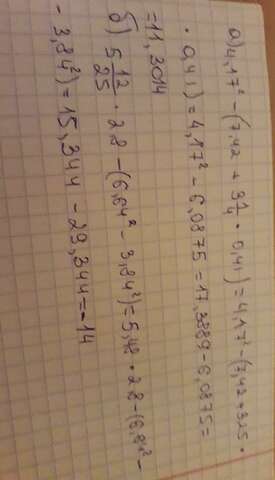 а) 4,17² - (7,42 + 3 1/4 · 0,41) = 4,17² - (7,42 + 3,25 ·
· 0,41) = 4,17² - 6,0875 = 17,3889 - 6,0875 =
= 11,3014
б) 5 12/25 · 2,8 - (6,64² - 3,84²) = 5,48 · 2,8 - (6,64² -
- 3,84²) = 15,344 - 29,344 = -14